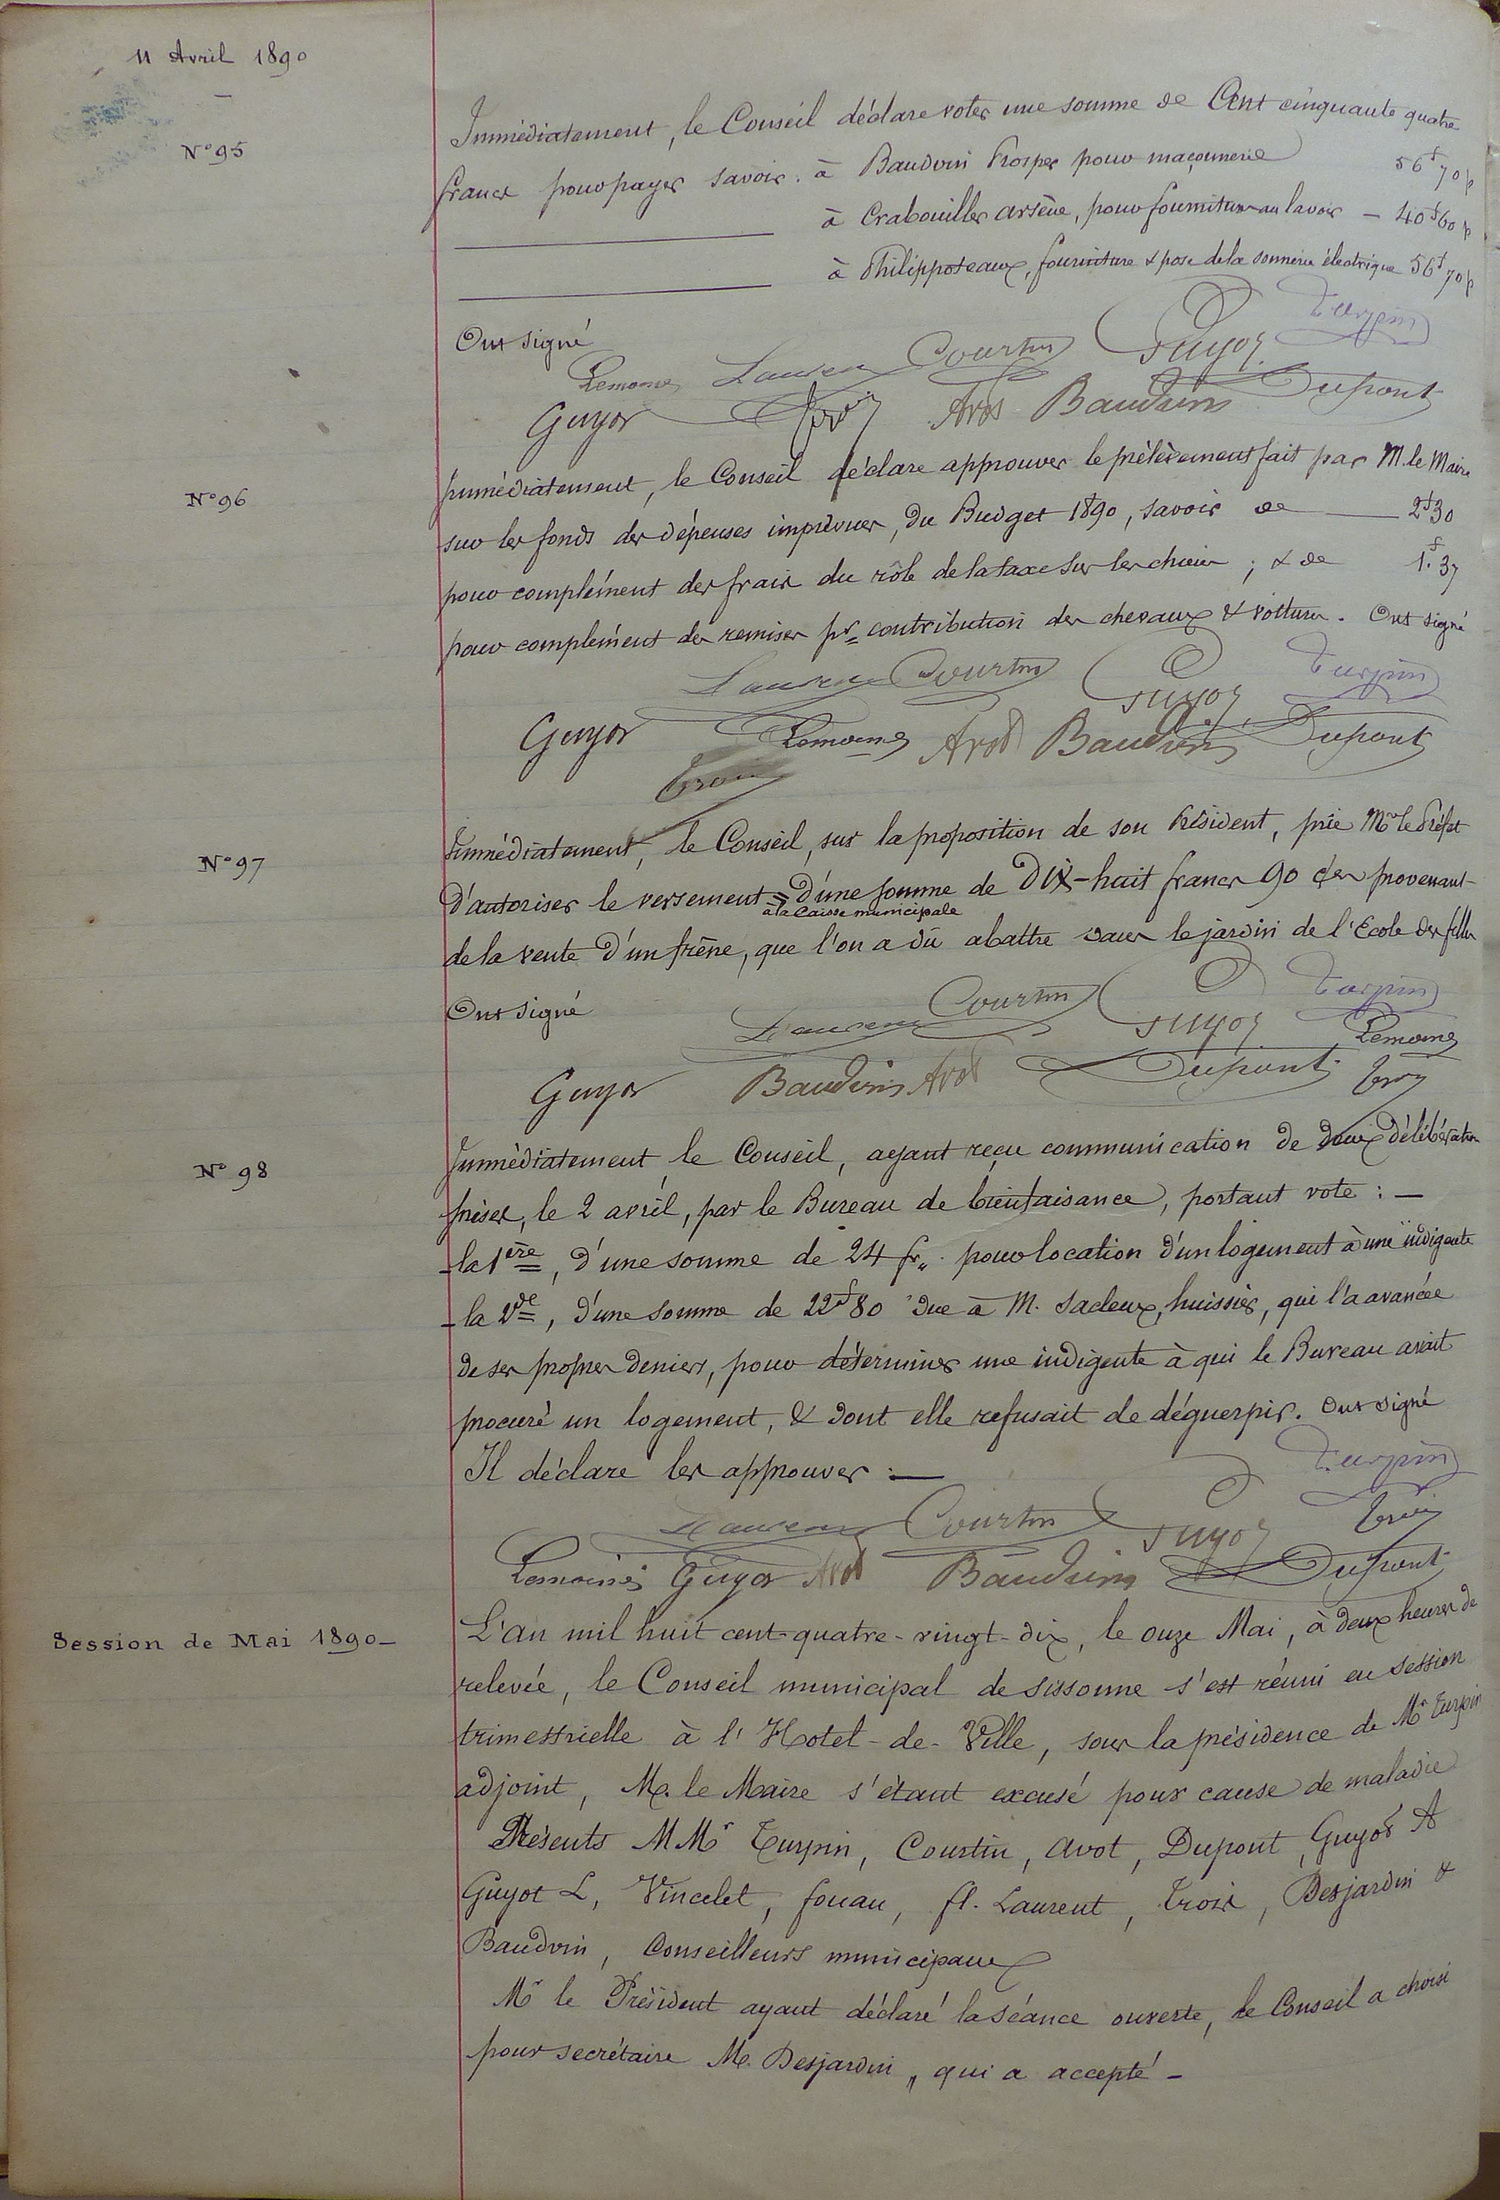 11 Avril 1890
N° 95
Immédiatement, le Conseil déclare voter une somme de Cent cinquante quatre
francs pour payer savoir : à Baudvin Prosper pour maçonnerie 56f 70
à Crabouillet Arsène, pour fourniture au lavoir — 40f 60
à Philippoteaux, fourniture & pose de la sonnerie électrique 56f 70
Ont signé
Turpin
Lemoine Laurent Courtin Guyot Dupont
Guyot Avot Baudvin
N° 96
Immédiatement, le Conseil déclare approuver le prélèvement fait par M. le Maire
sur les fonds des dépenses imprévues, du Budget 1890, savoir de — 2f 30
pour complément des frais du rôle de la taxe sur les chiens ; & de 1f. 37
pour complément des remises pr contribution des chevaux & voitures. Ont signé
Laurent Courtin Guyot Turpin
Guyot Lemoine Avot Baudvin Dupont
Troix
N° 97
Immédiatement, le Conseil, sur la proposition de son Président, prie Mr le Préfet
d'autoriser le versement = d'une somme de Dix-huit francs 90 ces provenant
à la Caisse municipale
de la vente d'un frêne, que l'on a dû abattre dans le jardin de l'Ecole des filles
Ont signé
Laurent Courtin Guyot Turpin
Lemoine
Guyot Baudvin Avot Dupont Troix
N° 98
Immédiatement le Conseil, ayant reçu communication de deux délibérations
prises, le 2 avril, par le Bureau de bienfaisance, portant vote : —
- la 1ère, d'une somme de 24 fr. pour location d'un logement à une indigente
- la 2de, d'une somme de 22f 80 due à M. Sacleux, huissier, qui l'a avancée
de ses propres deniers, pour déterminer une indigente à qui le Bureau avait
procuré un logement, & dont elle refusait de déguerpir. Ont signé
Il déclare les approuver : —
Turpin
Laurent Courtin Guyot Troix
Lemoine Guyot Avot Baudvin Dupont
Session de Mai 1890 —
L'an mil huit cent quatre-vingt-dix, le onze Mai, à deux heures de
relevée, le Conseil municipal de Sissonne s'est réuni en session
trimestrielle à l'Hotel-de-Ville, sous la présidence de Mr Turpin
adjoint, M. le Maire s'étant excusé pour cause de maladie
Présents MMrs Turpin, Courtin, Avot, Dupont, Guyot A
Guyot L, Vincelet, Fouan, fl. Laurent, Troix, Desjardin &
Baudvin, Conseillers municipaux
Mr le Président ayant déclaré la séance ouverte, le Conseil a choisi
pour secrétaire M. Desjardin, qui a accepté —